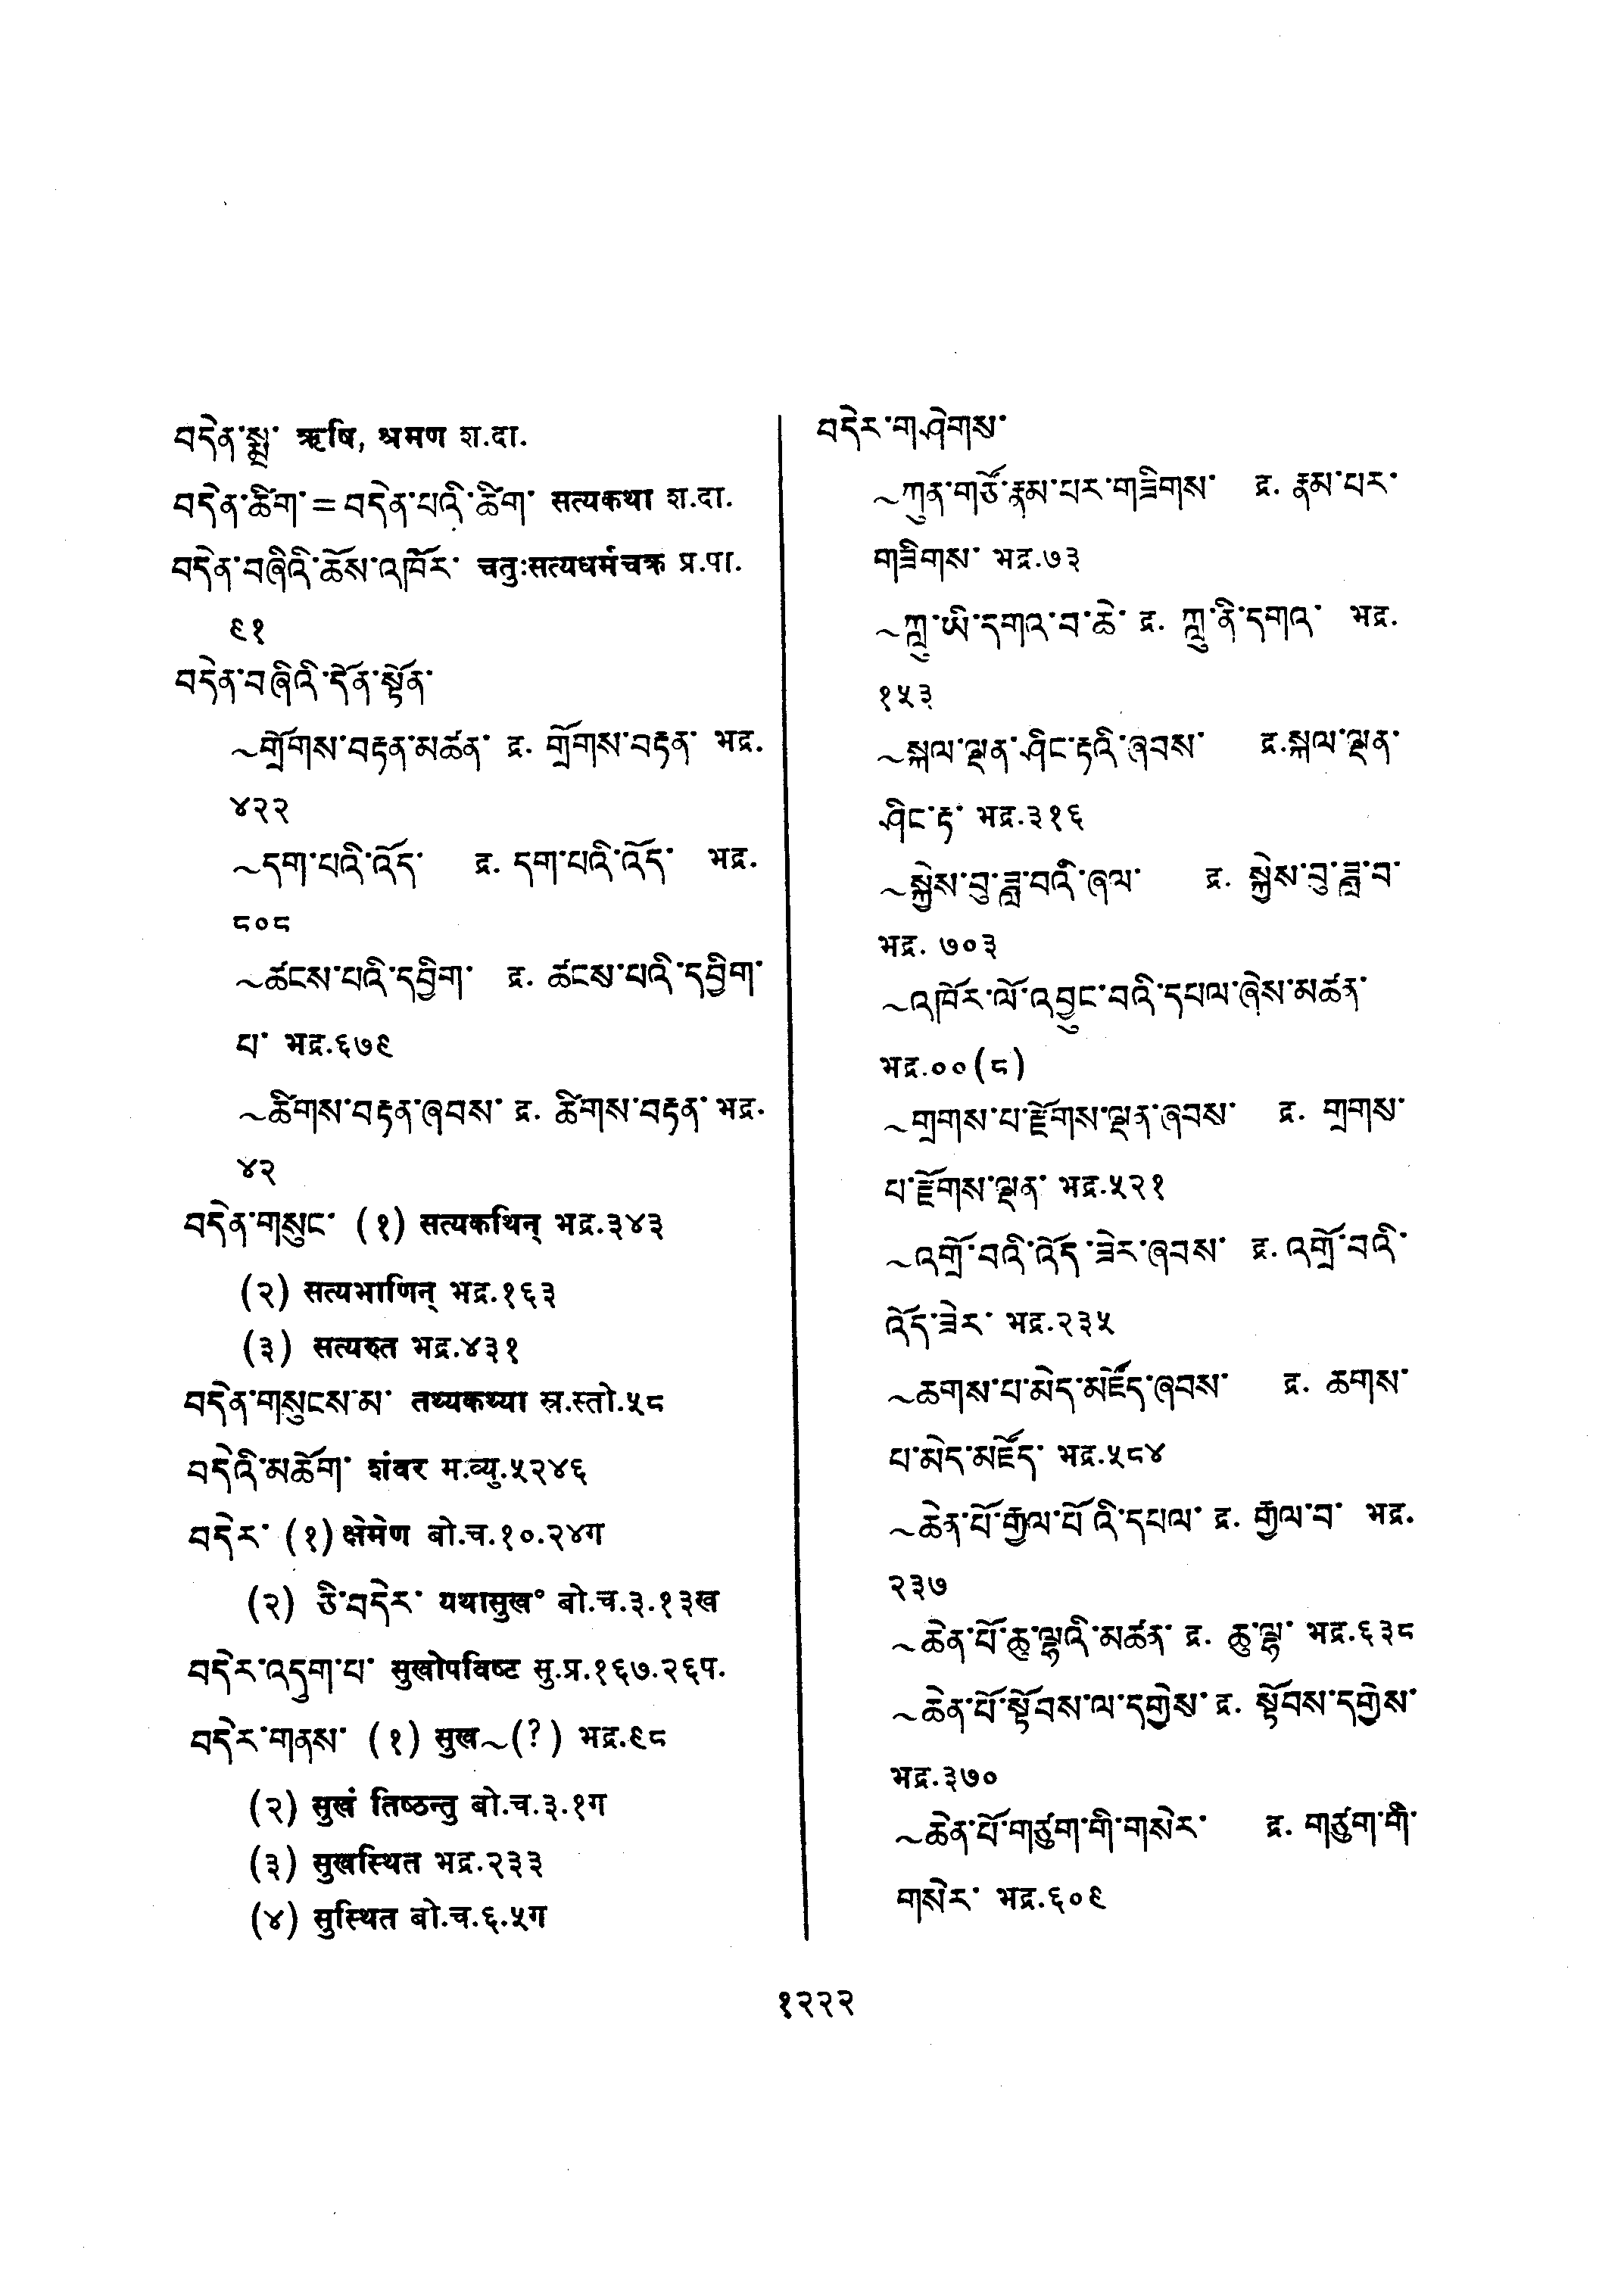 བདེན་སྨྲ་ ऋषि, श्रमण श.दा.
བདེན་ཚིག་ = བདེན་པའི་ཚིག་ सत्यकथा श.दा.
བདེན་བཞིའི་ཆོས་འཁོར་ चतुःसत्यधर्मचक्र प्र.पा.
९१
བདེན་བཞིའི་དོན་སྟོན་
~གྲོགས་བརྟན་མཚན་ द्र. གྲོགས་བརྟན་ भद्र.
४२२
~དག་པའི་འོད་ द्र. དག་པའི་འོད་ भद्र.
८०८
~ཚངས་པའི་དབྱིག་ द्र. ཚངས་པའི་དབྱིག་
པ་ भद्र.६७९
~ཚིགས་བརྟན་ཞབས་ द्र. ཚིགས་བརྟན་ भद्र.
४२
བདེན་གསུང་ (१) सत्यकथिन् भद्र.३४३
(२) सत्यभाणिन् भद्र.१६३
(३) सत्यरुत भद्र.४३१
བདེན་གསུངས་མ་ तथ्यकथ्या स्र.स्तो.५८
བདེའི་མཆོག་ शंवर म.व्यु.५२४६
བདེར་ (१) क्षेमेण बो.च.१०.२४ग
(२) ཅི་བདེར་ यथासुख° बो.च.३.१३ख
བདེར་འདུག་པ་ सुखोपविष्ट सु.प्र.१६७.२६प.
བདེར་གནས་ (१) सुख~(?) भद्र.९८
(२) सुखं तिष्ठन्तु बो.च.३.१ग
(३) सुखस्थित भद्र.२३३
(४) सुस्थित बो.च.६.५ग
བདེར་གཤེགས་
~ཀུན་གཙོ་རྣམ་པར་གཟིགས་ द्र. རྣམ་པར་
གཟིགས་ भद्र.७३
~ཀླུ་ཡི་དགའ་བ་ཆེ་ द्र. ཀླུ་ནི་དགའ་ भद्र.
१५३
~སྐལ་ལྡན་ཤིང་རྟའི་ཞབས་ द्र.སྐལ་ལྡན་
ཤིང་རྟ་ भद्र.३१६
~སྐྱེས་བུ་ཟླ་བའི་ཞལ་ द्र. སྐྱེས་བུ་ཟླ་བ་
भद्र. ७०३
~འཁོར་ལོ་འབྱུང་བའི་དཔལ་ཞེས་མཚན་
भद्र.००(८)
~གྲགས་པ་རྫོགས་ལྡན་ཞབས་ द्र. གྲགས་
པ་རྫོགས་ལྡན་ भद्र.५२१
~འགྲོ་བའི་འོད་ཟེར་ཞབས་ द्र. འགྲོ་བའི་
འོད་ཟེར་ भद्र.२३५
~ཆགས་པ་མེད་མཛོད་ཞབས་ द्र. ཆགས་
པ་མེད་མཛོད་ भद्र.५८४
~ཆེན་པོ་རྒྱལ་པོ་འི་དཔལ་ द्र. རྒྱལ་བ་ भद्र.
२३७
~ཆེན་པོ་ཆུ་ལྷའི་མཚན་ द्र. ཆུ་ལྷ་ भद्र.६३८
~ཆེན་པོ་སྟོབས་ལ་དགྱེས་ द्र. སྟོབས་དགྱེས་
भद्र.३७०
~ཆེན་པོ་གཙུག་གི་གསེར་ द्र. གཙུག་གི་
གསེར་ भद्र.६०९
१२२२